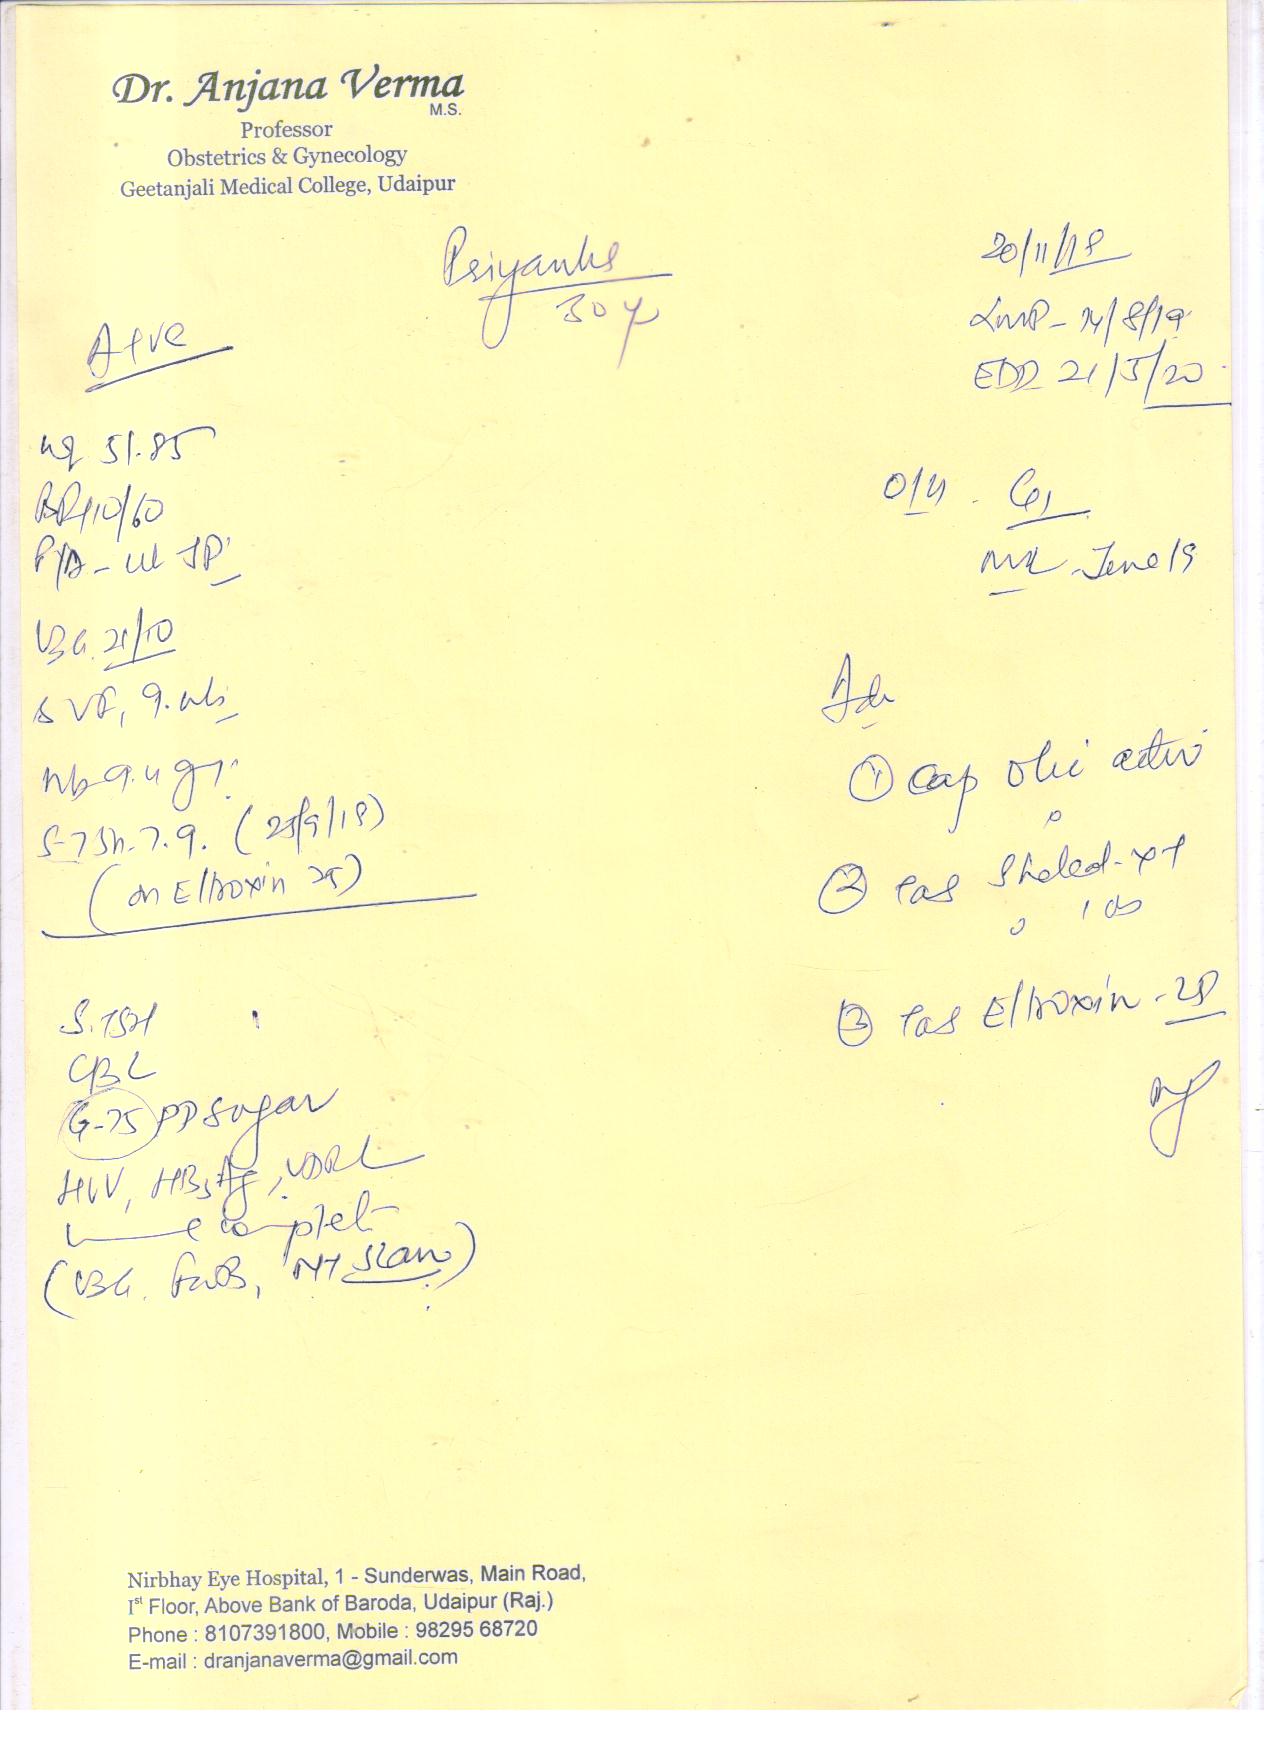 Dr. Anjana Verma
M.S.
Professor
Obstetrics & Gynecology
Geetanjali Medical College, Udaipur
20/11/19
30 y
LMP - 14/8/19
A +ve
EDD 21/5/20
wt 51.85
BP 110/60
O/H - G1
P/A - ut JP
June 19
USG 21/10
SVF, 9. wks
Adv
Hb 9.4 g%
① Cap
S-TSH-7.9. (25/9/19)
② Tab Shelcal-XT
(on Eltroxin 25)
1 OD
③ Tab Eltroxin -
S.TSH
CBC
G-75 PP Sugar
HIV, HBsAg, VDRL
complete
(USG. FWB, NT scan)
Nirbhay Eye Hospital, 1 - Sunderwas, Main Road,
Ist Floor, Above Bank of Baroda, Udaipur (Raj.)
Phone : 8107391800, Mobile : 98295 68720
E-mail : dranjanaverma@gmail.com